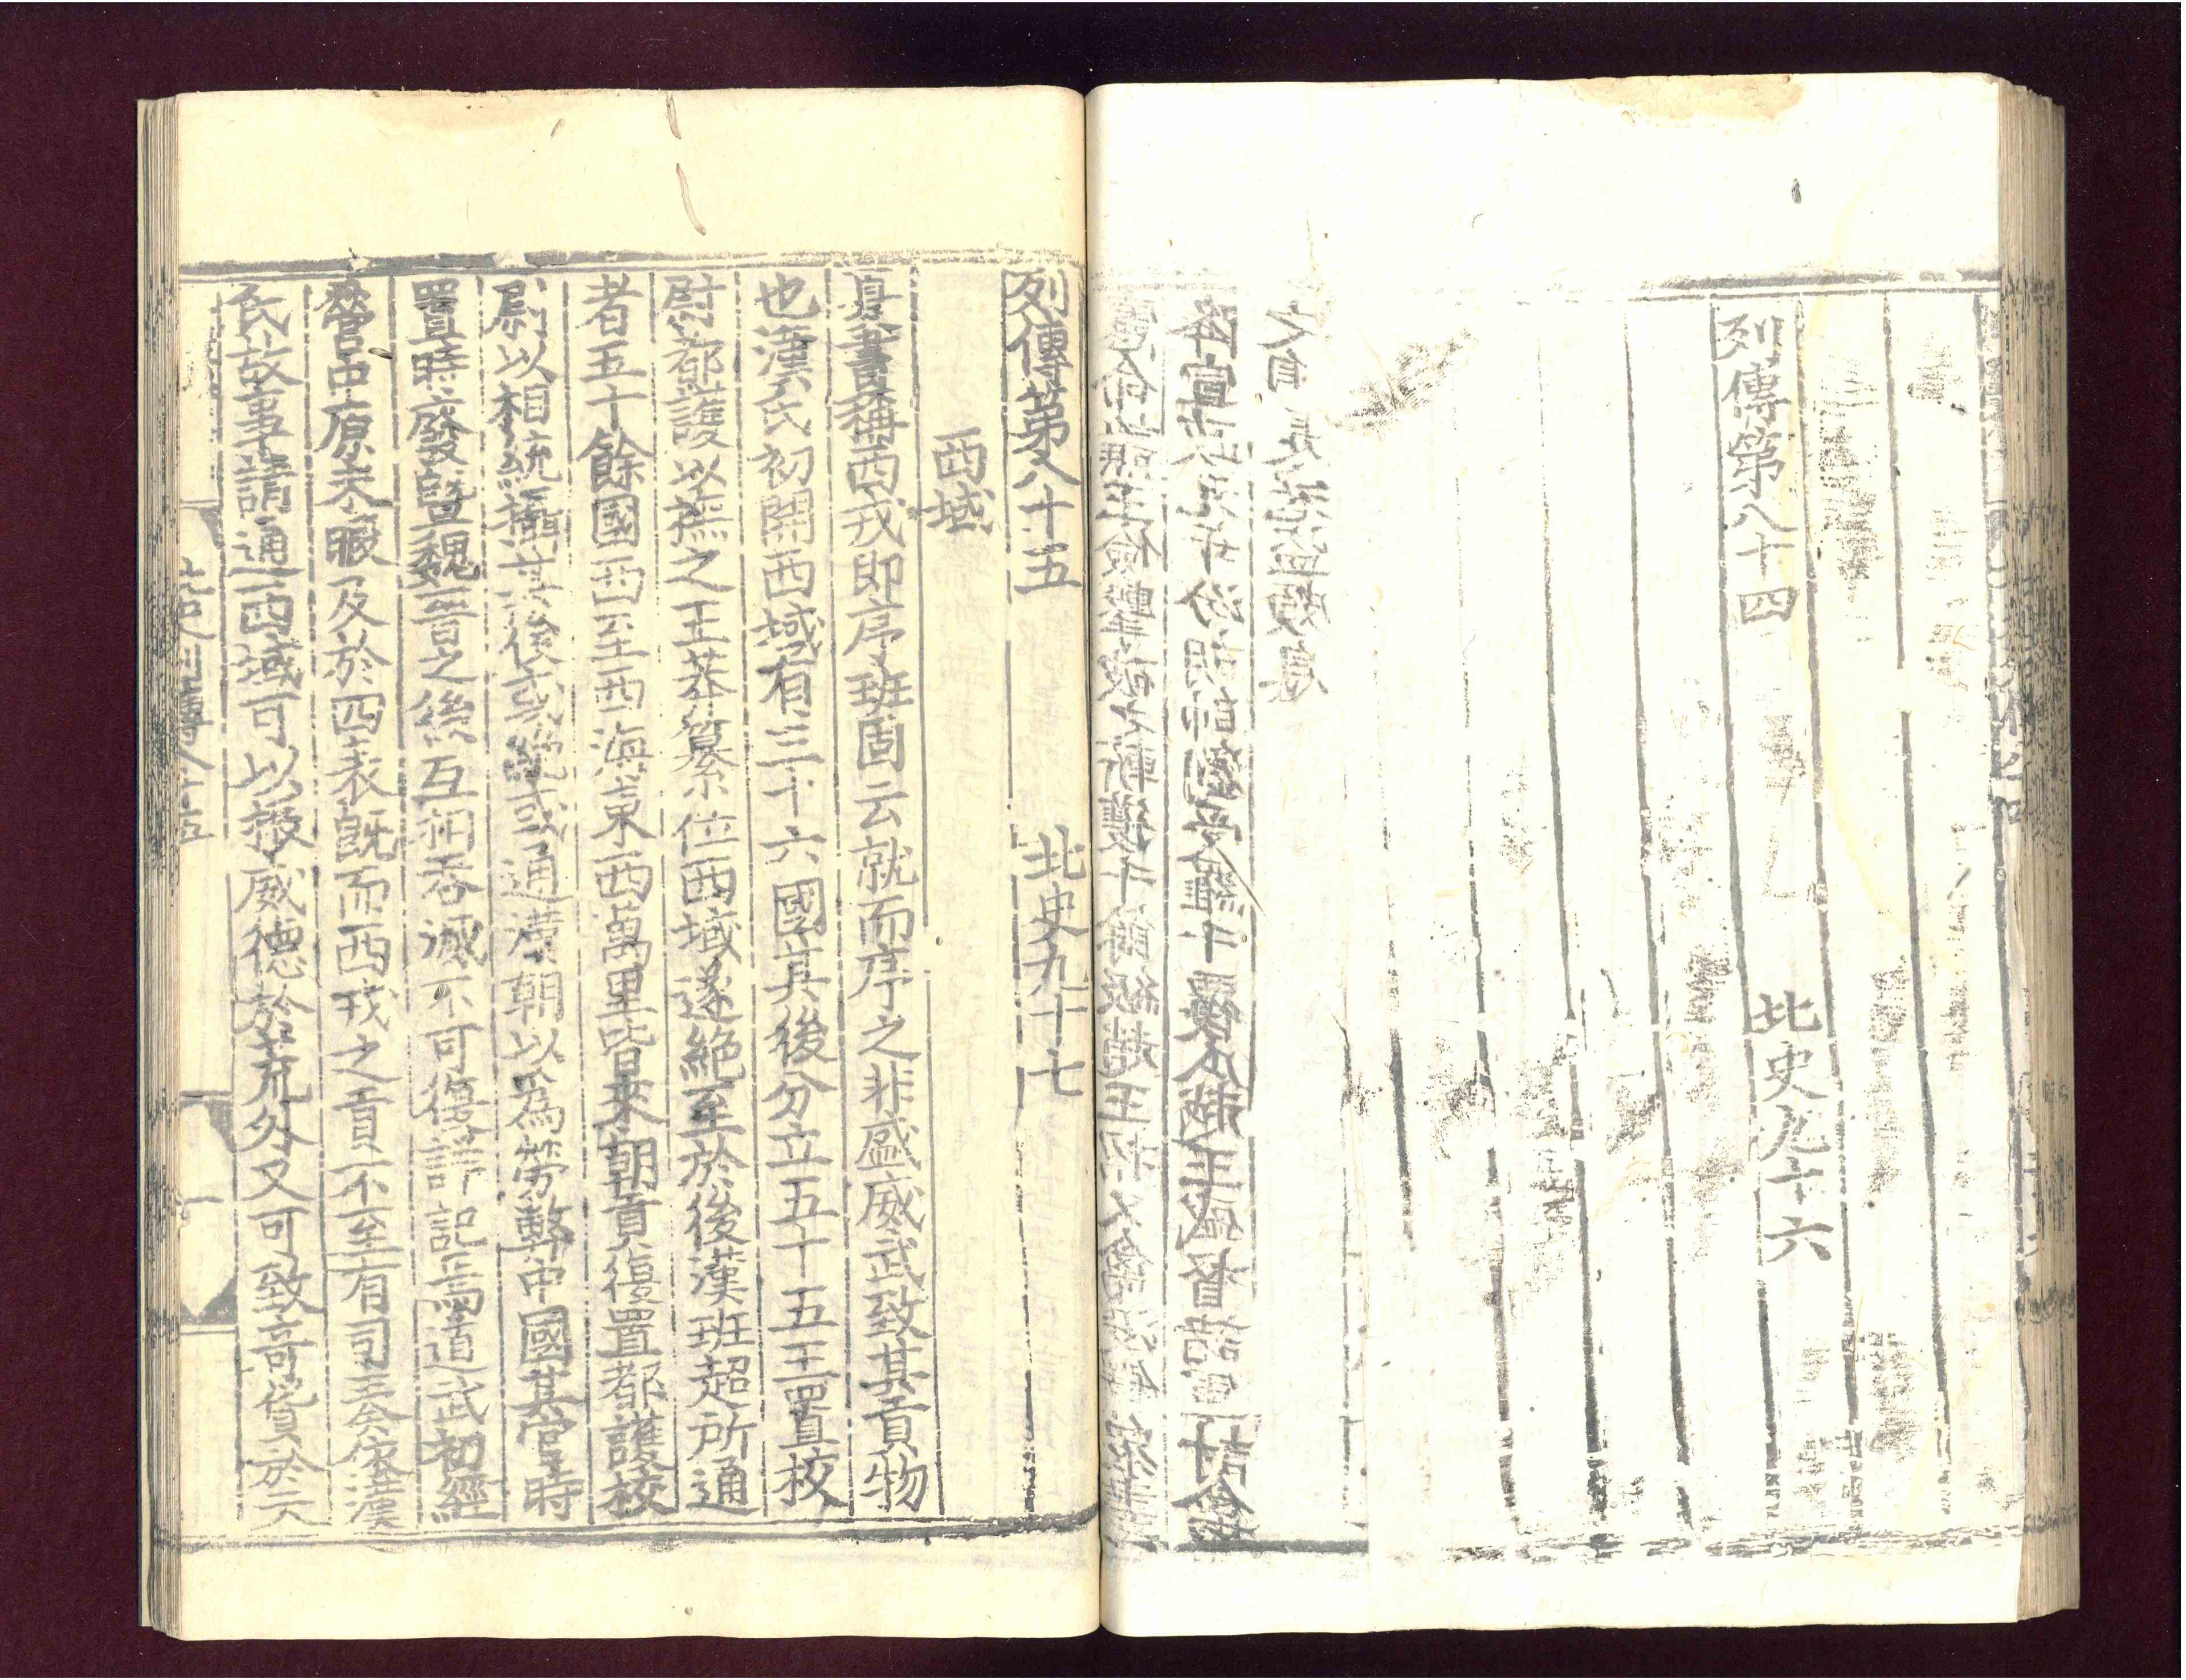 列傳第八十四 北史九十六
列傳第八十五 北史九十七
西域
夏書稱西戎即序班固云就而序之非盛威武致其貢物
也漢氏初開西域有三十六國其後分立五十五王置校
尉都護以撫之王莽篡位西域遂絶至於後漢班超所通
者五十餘國西至西海東西萬里皆來朝貢復置都護校
尉以相統攝其後或絶或通漢朝以爲勞弊中國其官時
置時廢暨魏晉之後互相吞滅不可復詳記焉道武初經
營中原未暇及於四表既而西戎之貢不至有司奏依漢
氏故事請通西域可以振威德於荒外又可致奇貨於天
北史列傳八十五